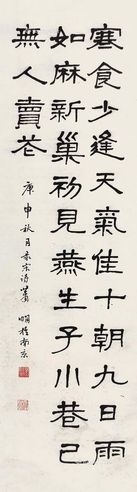 寒食少逢天氣佳十朝九日雨
如麻新巢初見燕生子小巷已
無人賣花
庚申秋月录宋诗